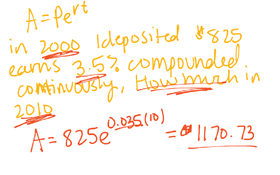 A = Pert
in 2000 I deposited $825
earns 3.5% compounded
continuously, How much in
2010
A = 825e^0.035(10) = 1170.73